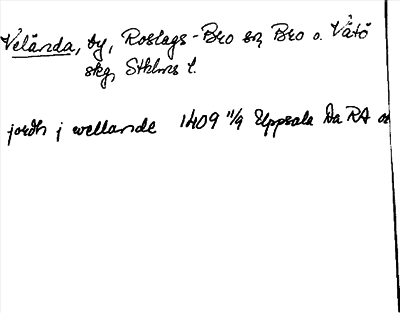 Velända, by, Roslags-Bro sn, Bro o. Vätö
skg, Sthlms l.
jordh j wellande 1409 11/9 Uppsala Da RA or